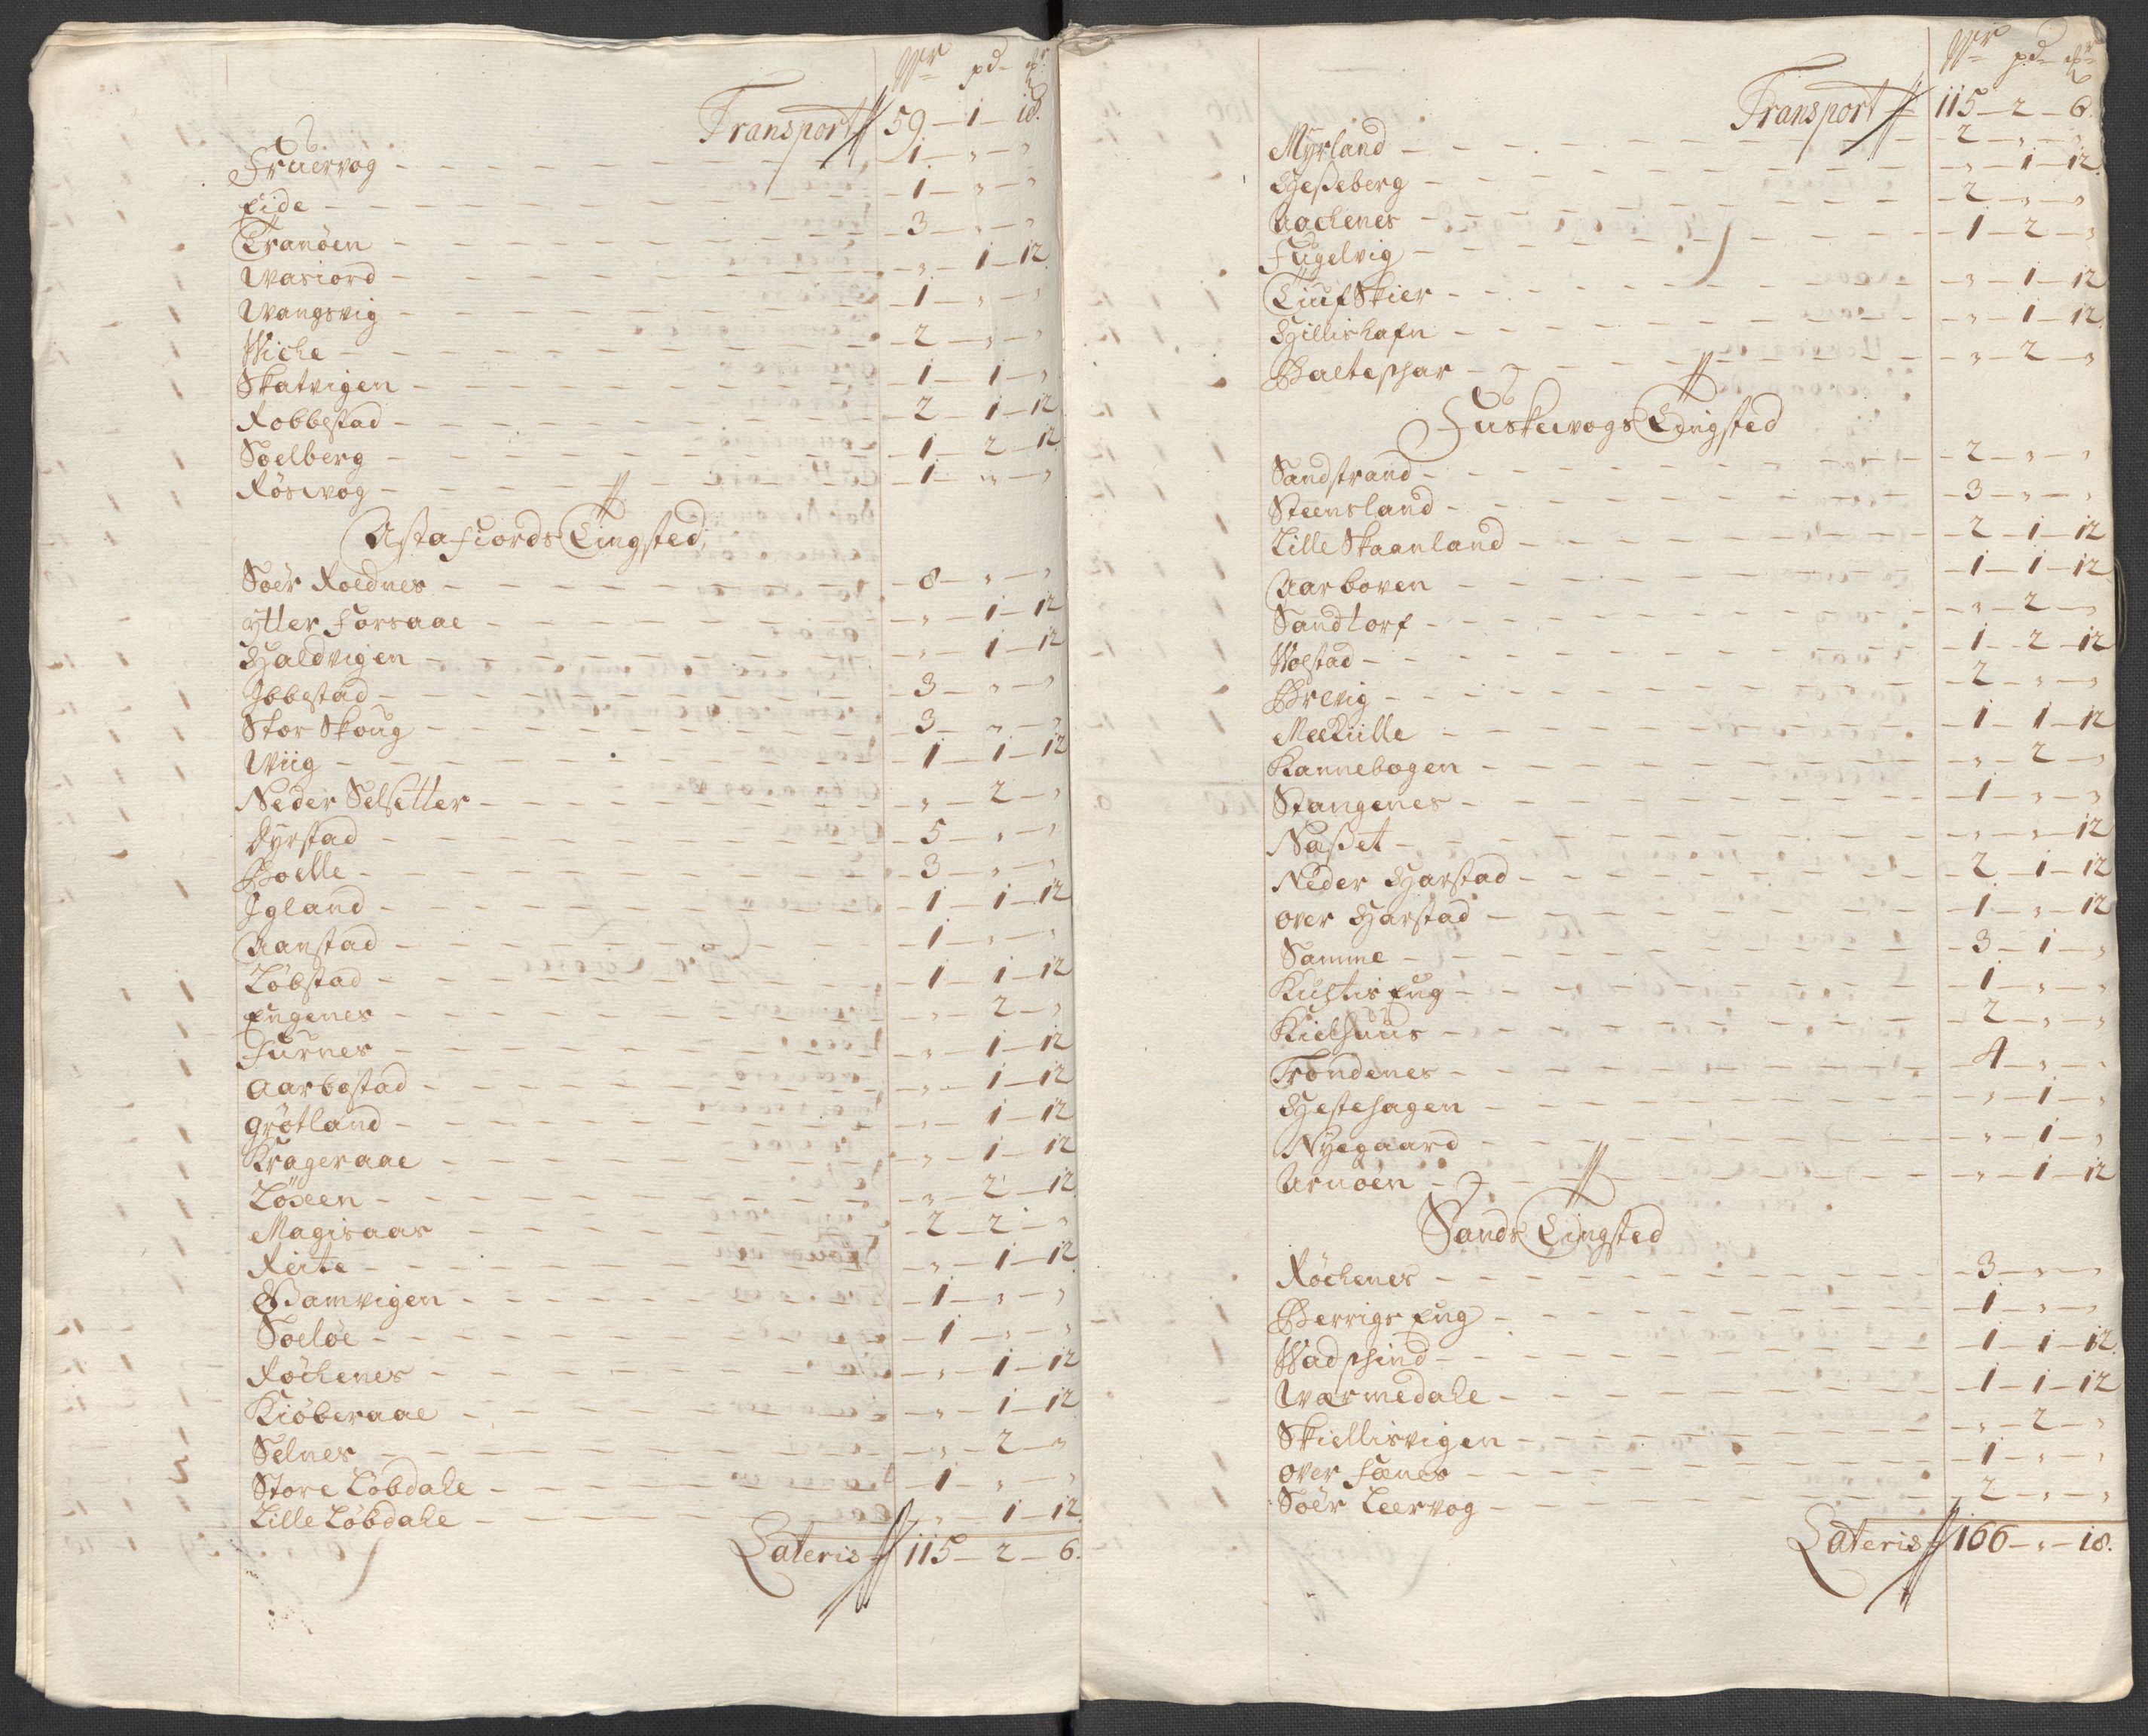 Wr pd
Transport 59 – 1 – 18.
Fruervog – 1 – " – "
Eide – 1 – " – "
Tranöen – 3 – " – "
Wasiord – " – 1 – 12
Wangsvig – 1 – " – "
Wiche – 2 – " – "
Skatvigen – 1 – 1 – "
Robbestad – 2 – 1 – 12
Söelberg – 1 – 2 – 12
Rösvog – 1 – " – "
Astafiords Tingsted
Söer Roldnes – 8 – " – "
ytter Forsaae – " – 1 – 12
Haldvigen – " – 1 – 12
Ibbestad – 3 – " – "
Stor Skoug – 3 – " – "
Wiig – 1 – 1 – 12
Neder Selsetter – " – 2 – "
Dyrstad – 5 – " – "
Bolle – 3 – " – "
Igland – 1 – 1 – 12
Aanstad – 1 – " – "
Löbstad – 1 – 1 – 12
Engenes – " – 2 – "
Furnes – " – 1 – 12
Aarbostad – " – 1 – 12
Grötland – " – 1 – 12
Krageraae – " – 1 – 12
Löseen – " – 2 – 12
Magisaar – 2 – 2 – "
Reite – " – 1 – 12
Gamvigen – 1 – " – "
Soelöe – 1 – " – "
Röchenes – " – 1 – 12
Kiöberaae – " – 1 – 12
Selnes – " – 2 – "
Store Löbdale – 1 – " – "
Lille Löbdale – " – 1 – 12.
Lateris 115 – 2 – 6.
Wr pd
Transport 115 – 2 – 6.
Myrland – 2 – " – "
Hesseberg – " – 1 – 12.
Aachenes – 2 – " – "
Fugelvig – 1 – 2 – "
Tiufskier – " – 1 – 12
Hillishafn – " – 1 – 12.
Balteschar – " – 2 – "
Fuskevogs Tingsted
Sandstrand – 2 – " – "
Steensland – 3 – " – "
Lille Skaanland – 2 – 1 – 12
Aarboven – 1 – 1 – 12
Sandtorf – " – 2 – "
Wolstad – 1 – 2 – 12
Brevig – 2 – " – "
Melkiille – 1 – 1 – 12
Kannebogen – " – 2 – "
Stangenes – 1 – " – "
Næsset – " – " – 12
Neder Harstad – 2 – 1 – 12
over Harstad – 1 – " – 12
Samme – 3 – 1 – "
Kiiltis Eng – 1 – " – "
Kielhuus – 2 – " – "
Trondenes – 4 – " – "
Hestehagen – " – 1 – "
Nyegaard – " – 1 – "
Arnöen – " – 1 – 12
Sands Tingsted
Röchenes – 3 – " – "
Berrigs Eng – 1 – " – "
Wadschind – 1 – 1 – 12.
Warmedahle – 1 – 1 – 12
Skiellisvigen – " – 2 – "
over Fænes – 1 – " – "
Söer Leervog – 2 – " – "
Lateris 166 – " – 18.